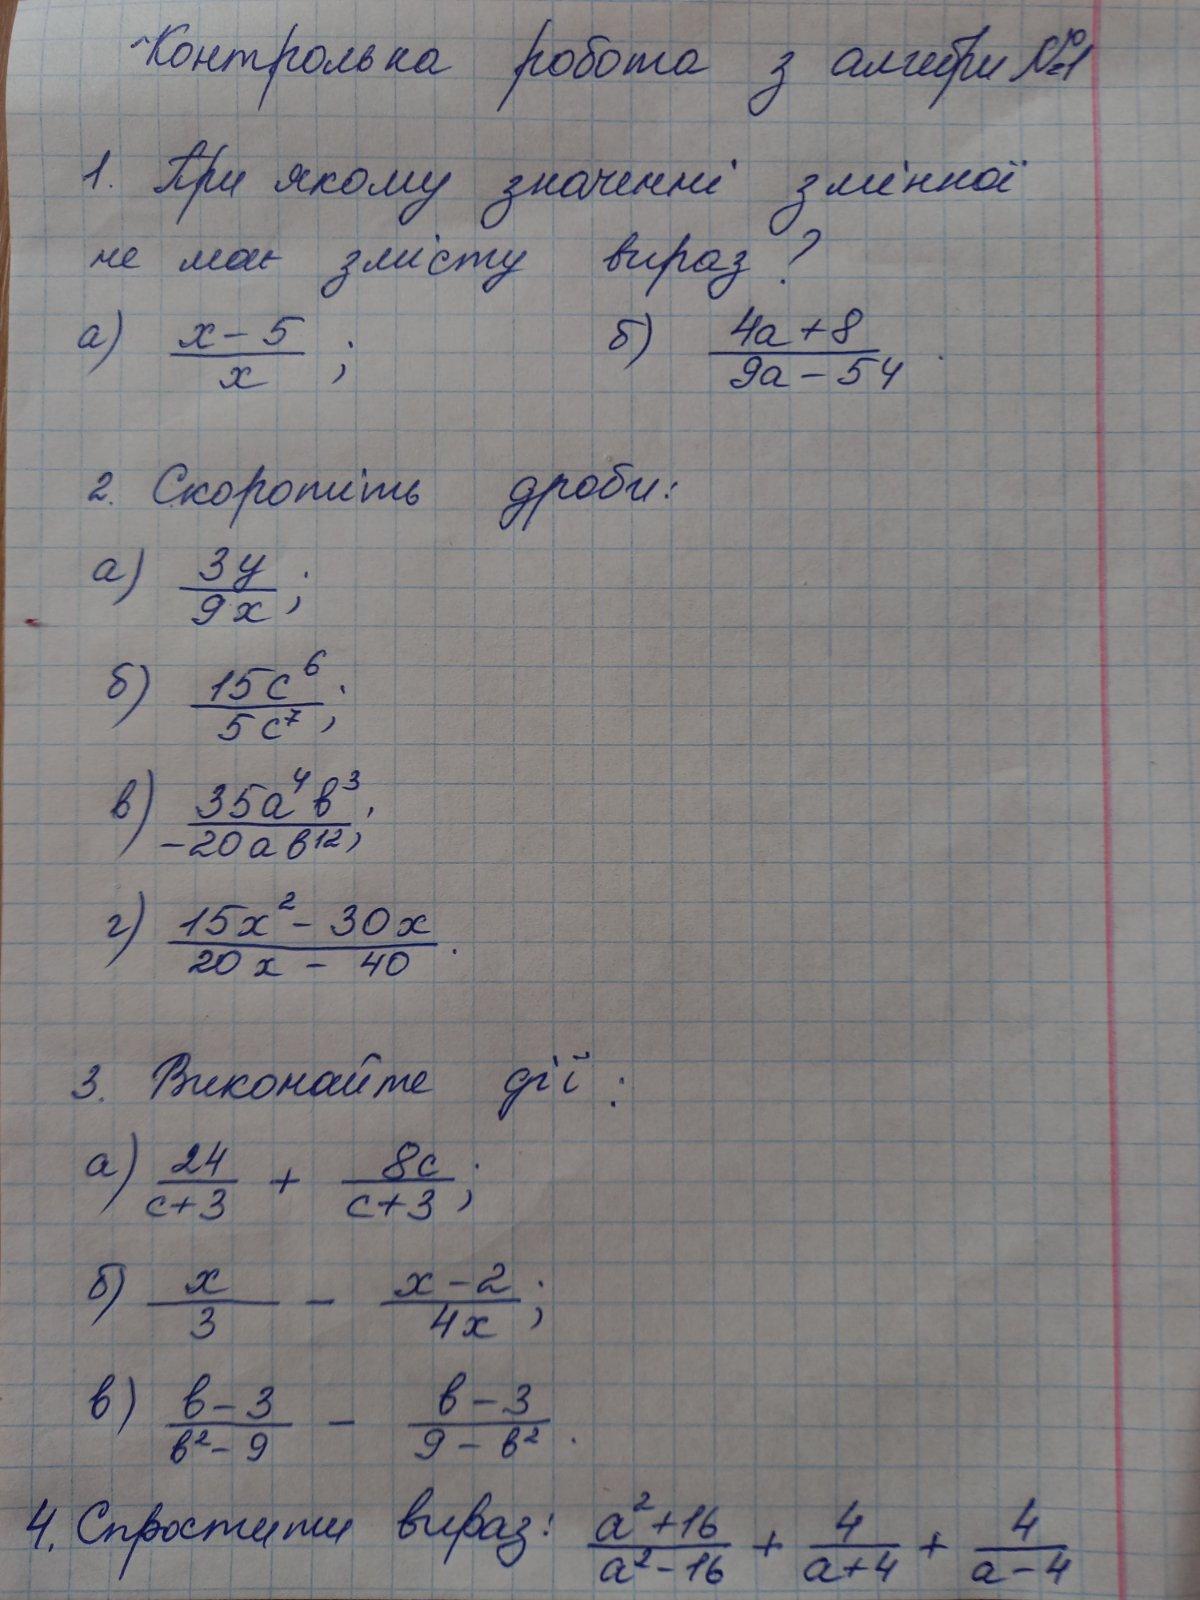 Контрольна робота з алгебри №1
1. При якому значенні змінної
не має змісту вираз?
а) (x - 5)/x; б) (4a + 8)/(9a - 54).
2. Скоротіть дроби:
а) 3y/9x;
б) 15c⁶/5c⁷;
в) 35a⁴b³/-20ab¹²;
г) (15x² - 30x)/(20x - 40).
3. Виконайте дії:
а) 24/(c+3) + 8c/(c+3);
б) x/3 - (x-2)/4x;
в) (b-3)/(b²-9) - (b-3)/(9-b²).
4. Спростити вираз: (a²+16)/(a²-16) + 4/(a+4) + 4/(a-4)